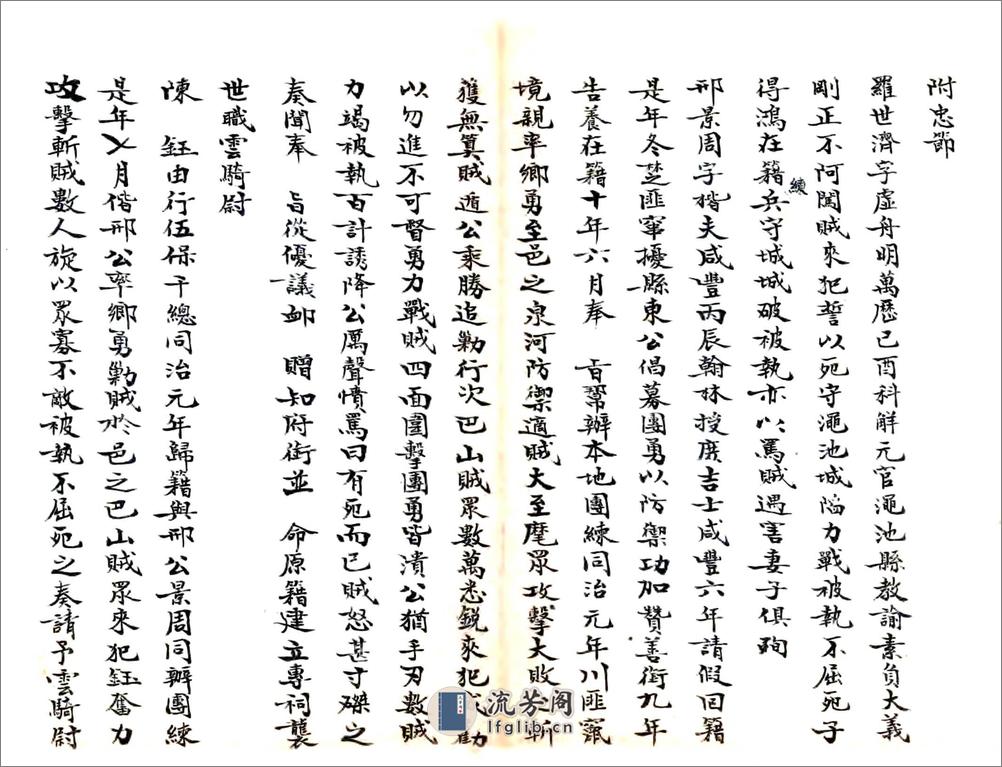 附忠節
羅世濟字虛舟明萬歷己酉科解元官澠池縣教諭素負大義
剛正不阿闖賊來犯誓以死守澠池城陷力戰被執不屈死子
得鴻在籍練兵守城城破被執亦以罵賊遇害妻子俱殉
邢景周字楷夫咸豐丙辰翰林授庶吉士咸豐六年請假回籍
是年冬楚匪竄擾縣東公倡募團勇以防禦功加贊善銜九年
告養在籍十年六月奉 旨幫辦本地團練同治元年川匪竄
境親率鄉勇至邑之泉河防禦適賊大至麾眾攻擊大敗斬
獲無算賊遁公乘勝追勦行次巴山賊眾數萬悉銳來犯或勸
以勿進不可督勇力戰賊四面圍擊團勇皆潰公猶手刃數賊
力竭被執百計誘降公厲聲憤罵曰有死而已賊怒甚寸磔之
奏聞奉 旨從優議卹 贈知府銜並 命原籍建立專祠襲
世職雲騎尉
陳 鈺由行伍保千總同治元年歸籍與邢公景周同辦團練
是年乂月偕邢公率鄉勇勦賊於邑之巴山賊眾來犯鈺奮力
攻擊斬賊數人旋以眾寡不敵被執不屈死之奏請予雲騎尉
流芳阁
lfglib.cn